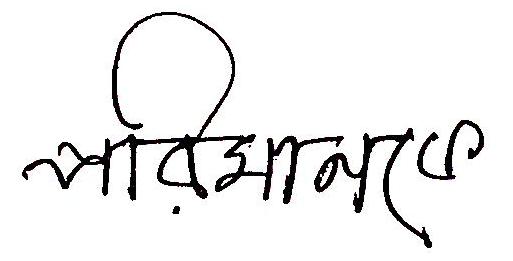 পরিমানকে